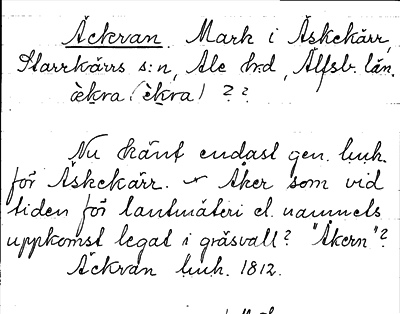 Äckvan. Mark i Äskekärr,
Starrkärrs s:n, Ale hrd, Älfsb. län.
èkva (èkva) ??
Nu känt endast gen. huh.
för Äskekärr. Åker som vid
tiden för lantmäteri el. namnets
uppkomst legat i gräsvall? "Åkern"?
Äckvan huh. 1812.